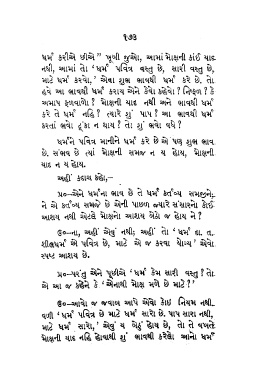 ૧૭૩
ધર્મ કરીએ છીએ” ખૂબી જુઓ, આમાં મોક્ષની કાંઈ યાદ
નથી, આમાં તો ‘ધર્મ પવિત્ર વસ્તુ છે, સારી વસ્તુ છે,
માટે ધર્મ કરવો,’ એવા શુભ ભાવથી ધર્મ કરે છે. તો
હવે આ ભાવથી ધર્મ કરાય એને કેવો કહેવો ? નિષ્ફળ ? કે
અમાપ ફળવાળો ? મોક્ષની યાદ નથી અને ભાવથી ધર્મ
કરે તે ધર્મ નહિ ? ત્યારે શું પાપ ? આ ભાવથી ધર્મ
કરતાં ભવો ટૂંકા ન થાય ? તો શું ભવો વધે ?
ધર્મને પવિત્ર માનીને ધર્મ કરે છે એ પણ શુભ ભાવ
છે. સંભવ છે ત્યાં મોક્ષની સમજ ન ય હોય, મોક્ષની
યાદ ન ય હોય.
અહીં કદાચ કહો,–
પ્ર૦–એને ધર્મના ભાવ છે તે ધર્મ કર્તવ્ય સમજીને.
ને એ કર્તવ્ય સમજે છે એની પાછળ જ્યારે સંસારનો કોઈ
આશય નથી એટલે મોક્ષનો આશય બેઠો જ હોય ને ?
ઉ૦–ના, અહીં એવું નથી; અહીં તો ‘ધર્મ દા. ત.
શીલધર્મ એ પવિત્ર છે, માટે એ જ કરવા યોગ્ય’ એવો
સ્પષ્ટ આશય છે.
પ્ર૦–પરંતુ એને પૂછીએ ‘ધર્મ કેમ સારી વસ્તુ ? તો
એ આ જ કહેને કે ‘એનાથી મોક્ષ મળે છે માટે ?’
ઉ૦–આવો જ જવાબ આપે એવો કાંઈ નિયમ નથી.
વળી ‘ધર્મ પવિત્ર છે માટે ધર્મ સારો છે. પાપ સારા નથી,
માટે ધર્મ સારો,’ એવું ય બેઠું હોય છે, તો તે વખતે
મોક્ષની યાદ નહિ હોવાથી શું ભાવથી કરેલો આનો ધર્મ